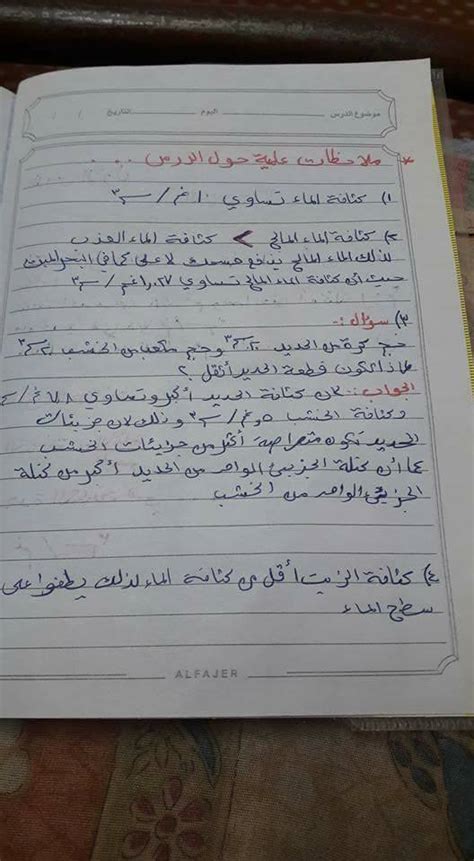 موضوع الدرس اليوم التاريخ / /
* ملاحظات علمية حول الدرس ...
١) كثافة الماء تساوي ١٠ غم/سم٣
٢) كثافة الماء المالح > كثافة الماء العذب
لذلك الماء المالح يدفع جسمك لأعلى كما في البحر الميت
حيث أن كثافة الماء المالح تساوي ١,٠٢٧ غم/سم٣
٣) سؤال :-
حجم كرة من الحديد ٢٠سم٣ وحجم مكعب من الخشب ٢٠سم٣
لماذا تكون قطعة الحديد أثقل ؟
الجواب :- لأن كثافة الحديد أكبر وتساوي ٧,٨ غم/سم٣
وكثافة الخشب ٠,٥ غم/سم٣ وذلك لأن جزيئات
الحديد تكون متراصة أكثر من جزيئات الخشب
كما أن كتلة الجزيئ الواحد من الحديد أكبر من كتلة
الجزيئ الواحد من الخشب
٤) كثافة الزيت أقل من كثافة الماء لذلك يطفوا على
سطح الماء
ALFAJER